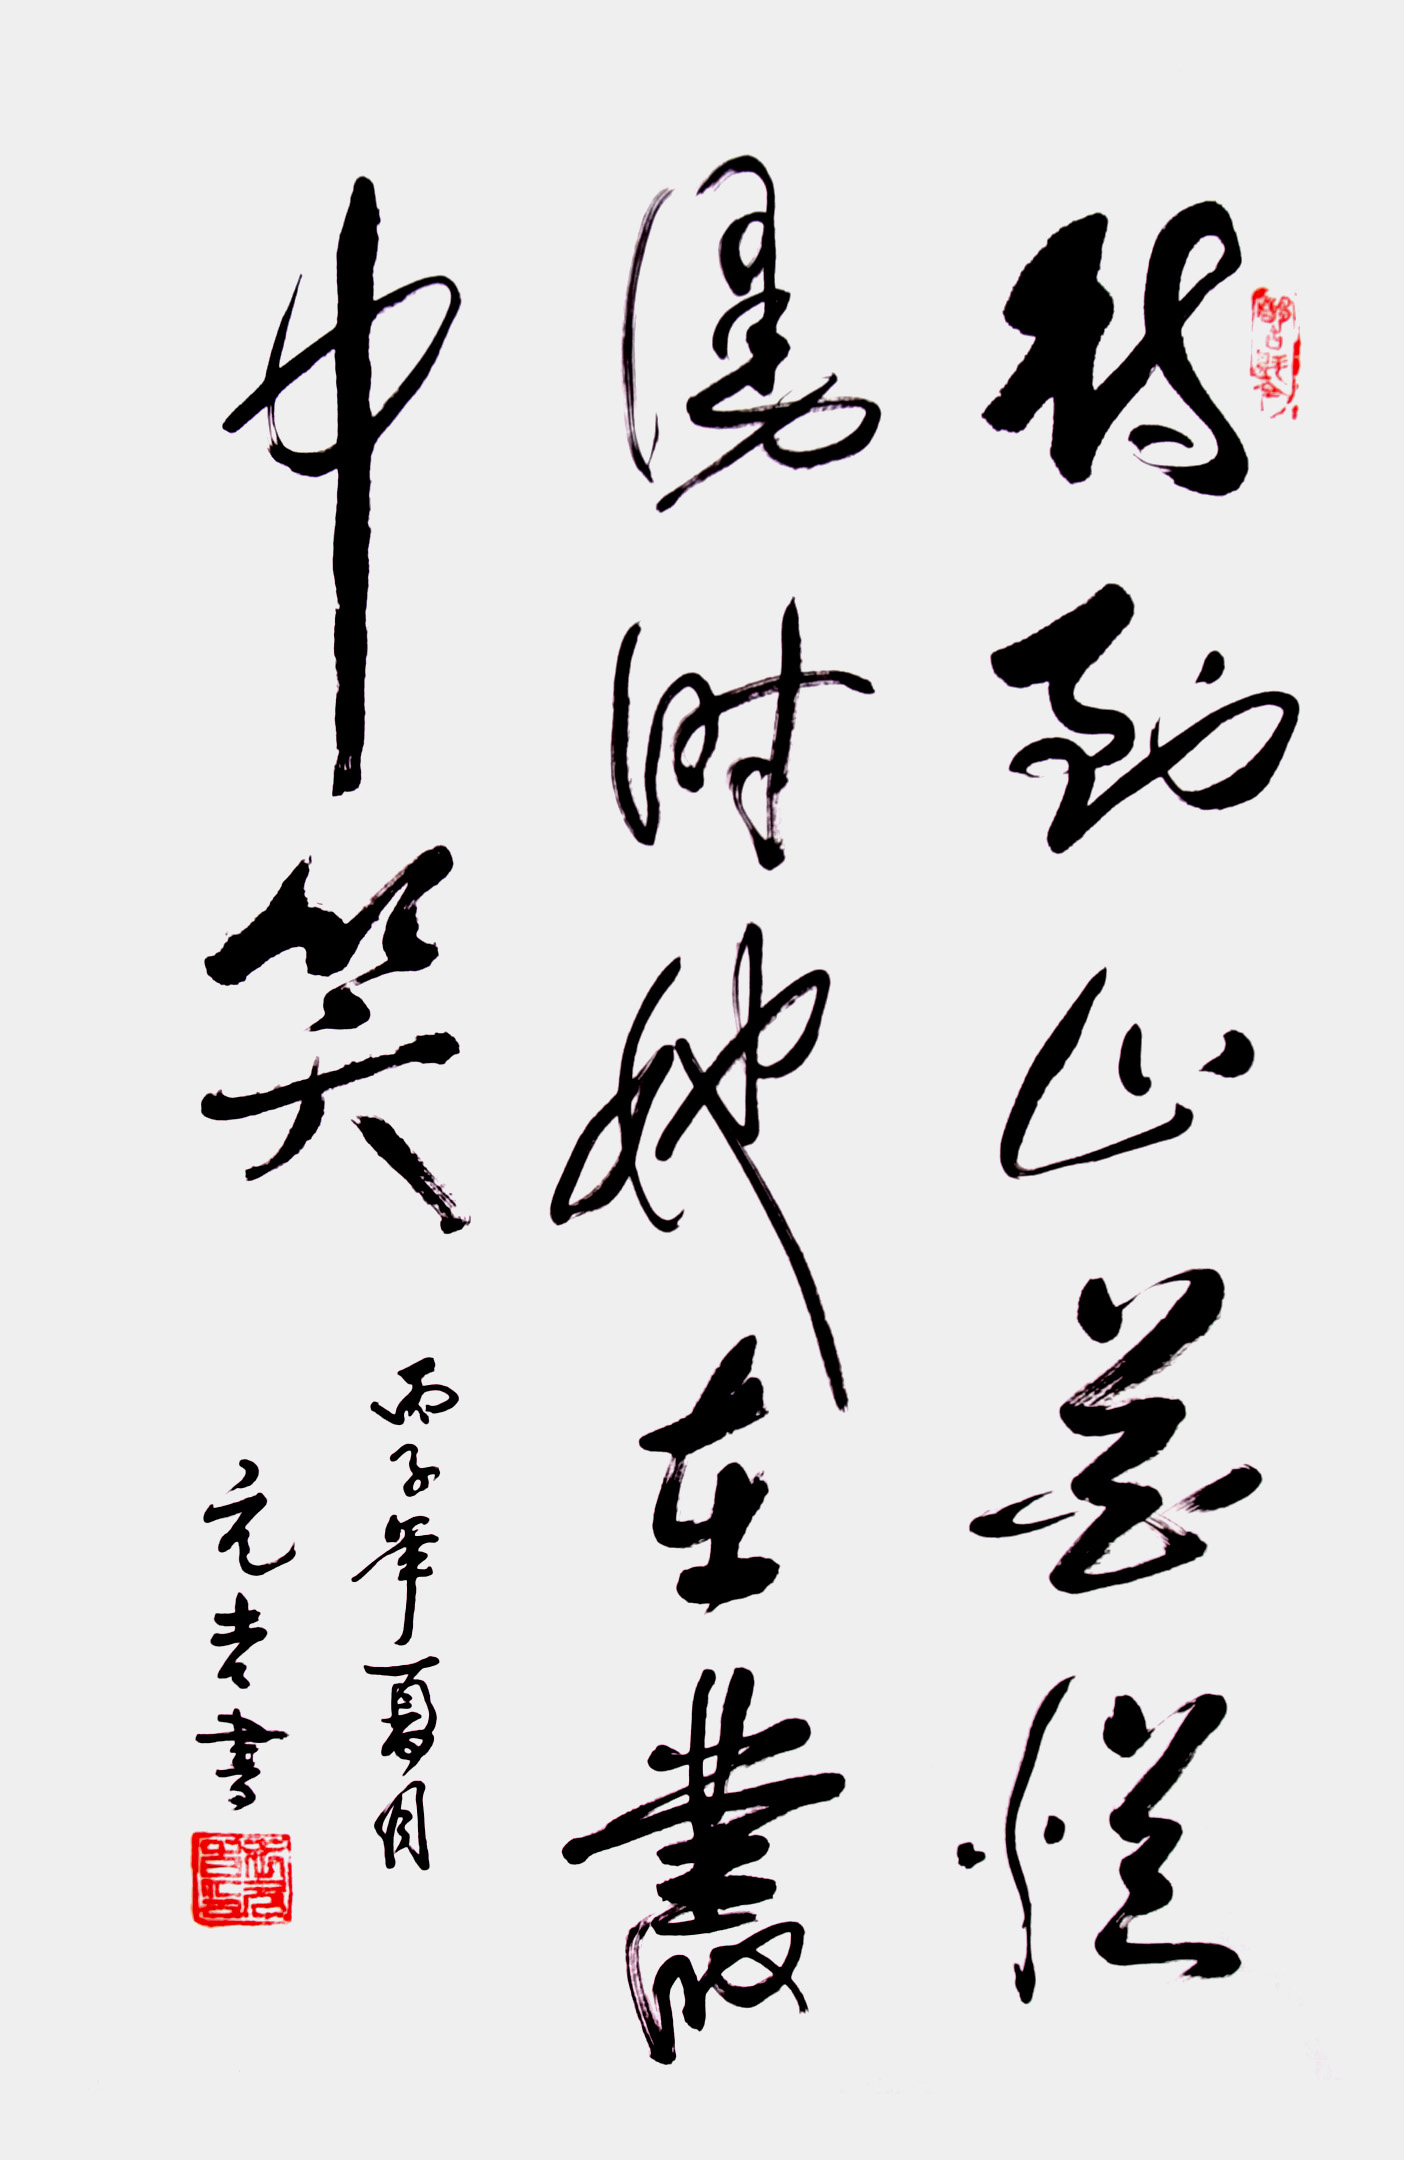 待到山花烂
漫时她在丛
中笑
丙子年夏月
元老书